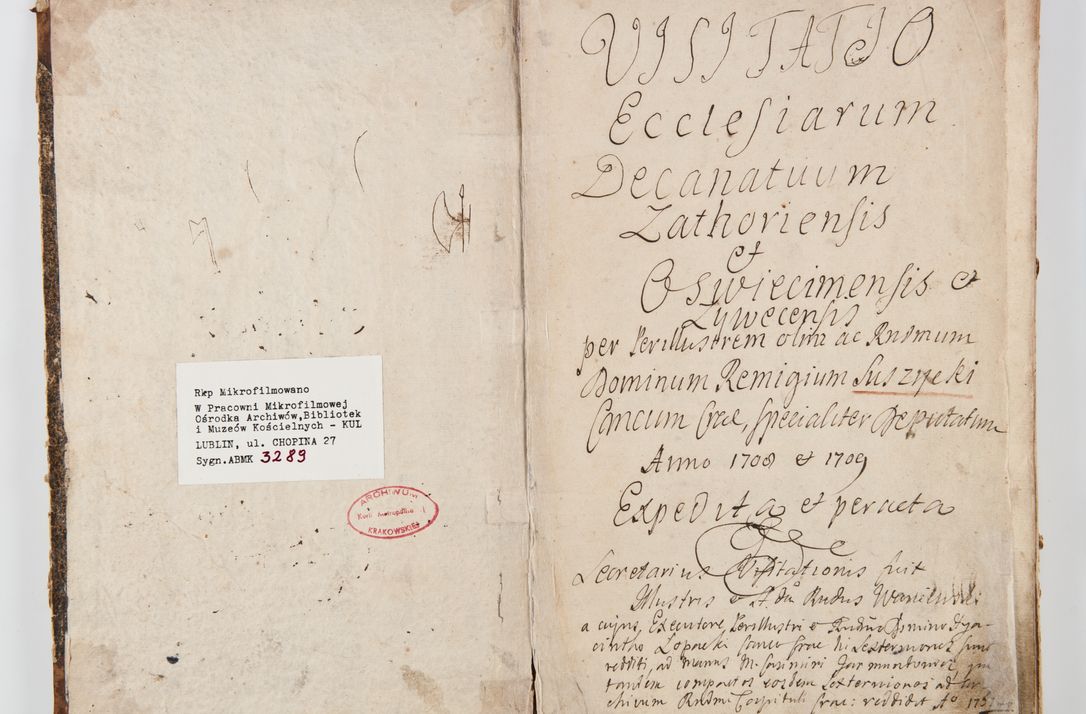 Rkp Mikrofilmowano
W Pracowni Mikrofilmowej
Ośrodka Archiwów,Bibliotek
i Muzeów Kościelnych - KUL
LUBLIN, ul. CHOPINA 27
Sygn.ABMK 3289
ARCHIWUM
Kurii Metropolitalnej
KRAKOWSKIEJ
VISITATIO
Ecclesiarum
Decanatuum
Zathoriensis
et
Oswiecimensis et
Zywecensis
per Perillustrem olim ac Rndmum
Dominum Remigium Suszycki
Cancum Crac, specialiter Deputatum
Anno 1708 et 1709
Expedita et peracta
Secretarius Visitationis fuit
Illustris et Rndus
a cujus Executore Perillustri et Domino Hya-
cintho Lopacki hi sexterniones sunt
redditi, ad manus M. Casimiri
tandem compactos eosdem sexterniones ad Ar-
chivum Rndmi Capituli Crac: reddidit Ao